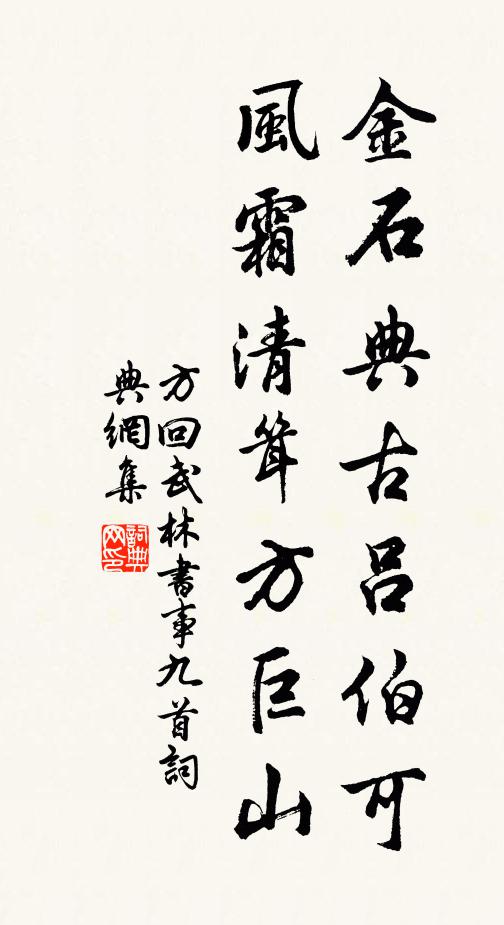 金石典古呂伯可
風霜清聳方巨山
方回武林書事九首詞
典網集
詞典网印